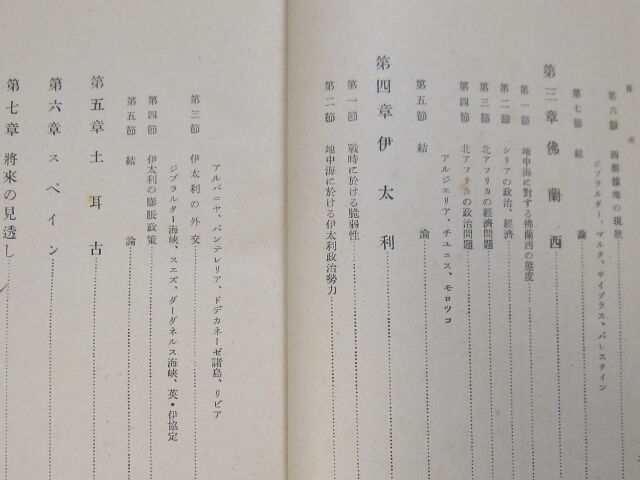 目次
第六節 海軍根據地の現狀
ジブラルター、マルタ、サイプラス、パレスタイン
第七節 結論
第三章 佛蘭西
第一節 地中海に對する佛蘭西の態度
第二節 シリアの政治、經濟
第三節 北アフリカの經濟問題
第四節 北アフリカの政治問題
アルジエリア、チユニス、モロツコ
第五節 結論
第四章 伊太利
第一節 戰時に於ける脆弱性
第二節 地中海に於ける伊太利政治勢力
アルバニヤ、パンテレリア、ドデカネーゼ諸島、リビア
第三節 伊太利の外交
ジブラルター海峽、スエズ、ダーグネルス海峽、英・伊協定
第四節 伊太利の膨脹政策
第五節 結論
第五章 土耳古
第六章 スペイン
第七章 將來の見透し